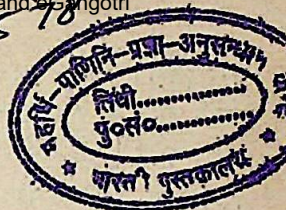 and eGangotri
78
महर्षि-पाणिनि-प्रज्ञा-अनुसन्धान
तिथी..................
पु०सं०..................
भारती पुस्तकालय